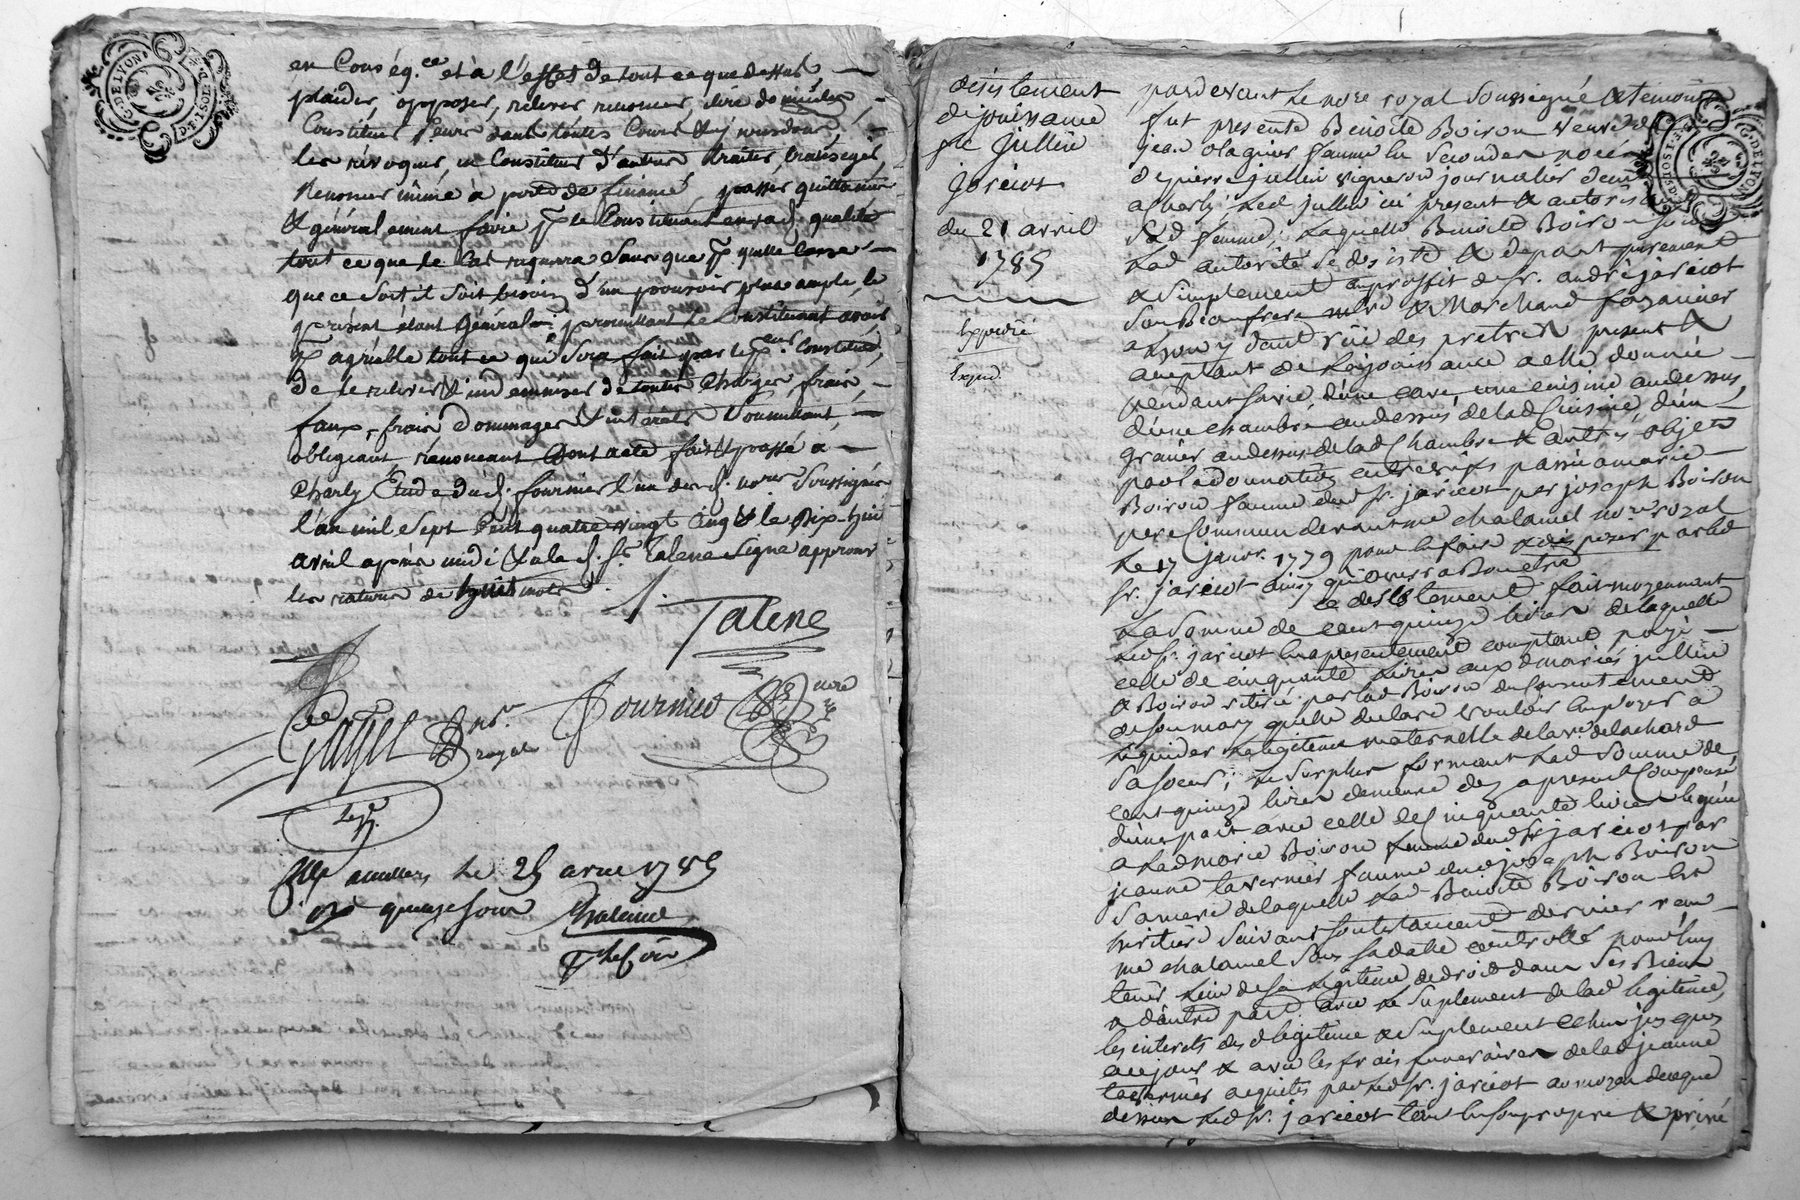 G. DE LYON
D. P. 10 S
en Conség.ce et à l'effet de tout ce que dessus
plaider, opposer, relever renoncer, elire domicile,
Constituer dans toutes Cours
les révoquer, en Constituer d'autres traiter, transiger,
passer quittance
& généralement faire p. le Constituant qualité
tout ce que le Cas requerra Sans que p. quelle Cause
que ce Soit il Soit besoin d'un pouvoir plus ample, le
présent étant Général promettant le Constituant avoir
p. agréable tout ce qui Sera fait par Constitué,
de le relever & indemniser de toutes Charges, frais,
faux-frais Dommages & intérêts Soumettant,
obligeant, renonceant Dont acte fait & passé a
Charly Etude dud. S. fournier l'un desd. no.res Soussignés
l'an mil Sept Cent quatre vingt Cinq & le Dix-huit
avril après midi & a led. S.r Talene Signé approuvé
les ratures de huit mots
Talene
fournier nore
nore
royal
le 25 avril 1785
quinze sous
Chalamel
désistement
de jouissance
p.r Jullien
Jaricot
du 21 avril
1785
Expedié
Exped.
pardevant Le nore royal Soussigné & temoins
fut presente Benoite Boiron veuve de
jean olagnier femme en Secondes noces
de pierre jullien vigneron journalier dem.t
a Charly; Led jullien ici present & autorisant
Sad femme; Laquelle Benoite Boiron Sous
Lad autorité Se desiste & depart purement
& Simplement au proffit de Sr. andré jaricot
Son Beaufrere Marchand
a Lyon y dem.t rüe des pretres present &
aceptant de La jouissance a elle donnée
pendant Sa vie, d'une cave, une cuisine au dessus,
d'une chambre au dessus de lad Cuisine, d'un
grenier au dessus de lad Chambre & autres objets
par la donnation entre vifs passée a marie
Boiron femme dud Sr. jaricot par joseph Boiron
pere Commun devant me chalamel nore royal
Le 17 janvr. 1779 pour en faire & disposer par led
Sr. jaricot ainsy qu'avisera Bon etre
ce desistement fait moyennant
La Somme de cent quinze livres de laquelle
Led Sr. jaricot en a presentement comptant payé
celle de cinquante livres aux d mariés jullien
& Boiron retirée par lad Boiron du Consentement
de Son mary qu'elle declare vouloir employer a
Liquider La legitime maternelle de la ve delachard
Sa Soeur; Le Surplus formant Lad Somme de
cent quinze livres demeure dez a present Compensé
d'une part avec celle de Cinquante livres leguée
a Lad marie Boiron femme dud Sr jaricot par
jeanne tavernier femme dud joseph Boiron
Sa mere de laquelle Lad Benoite Boiron est
heritiere Suivant Son testament dernier reçu
me chalamel Sous Sa datte controllé pour luy
tenir Lieu de Sa Legitime de droit dans Ses Biens
& d'autre part avec Le Suplement de lad legitime,
les interets des d legitime & Suplement echus jusques
a ce jour & avec les frais funeraires de lad jeanne
tavernier acquités par Led Sr. jaricot au moyen de ce que
dessus Led Sr. jaricot tant en Son propre & privé